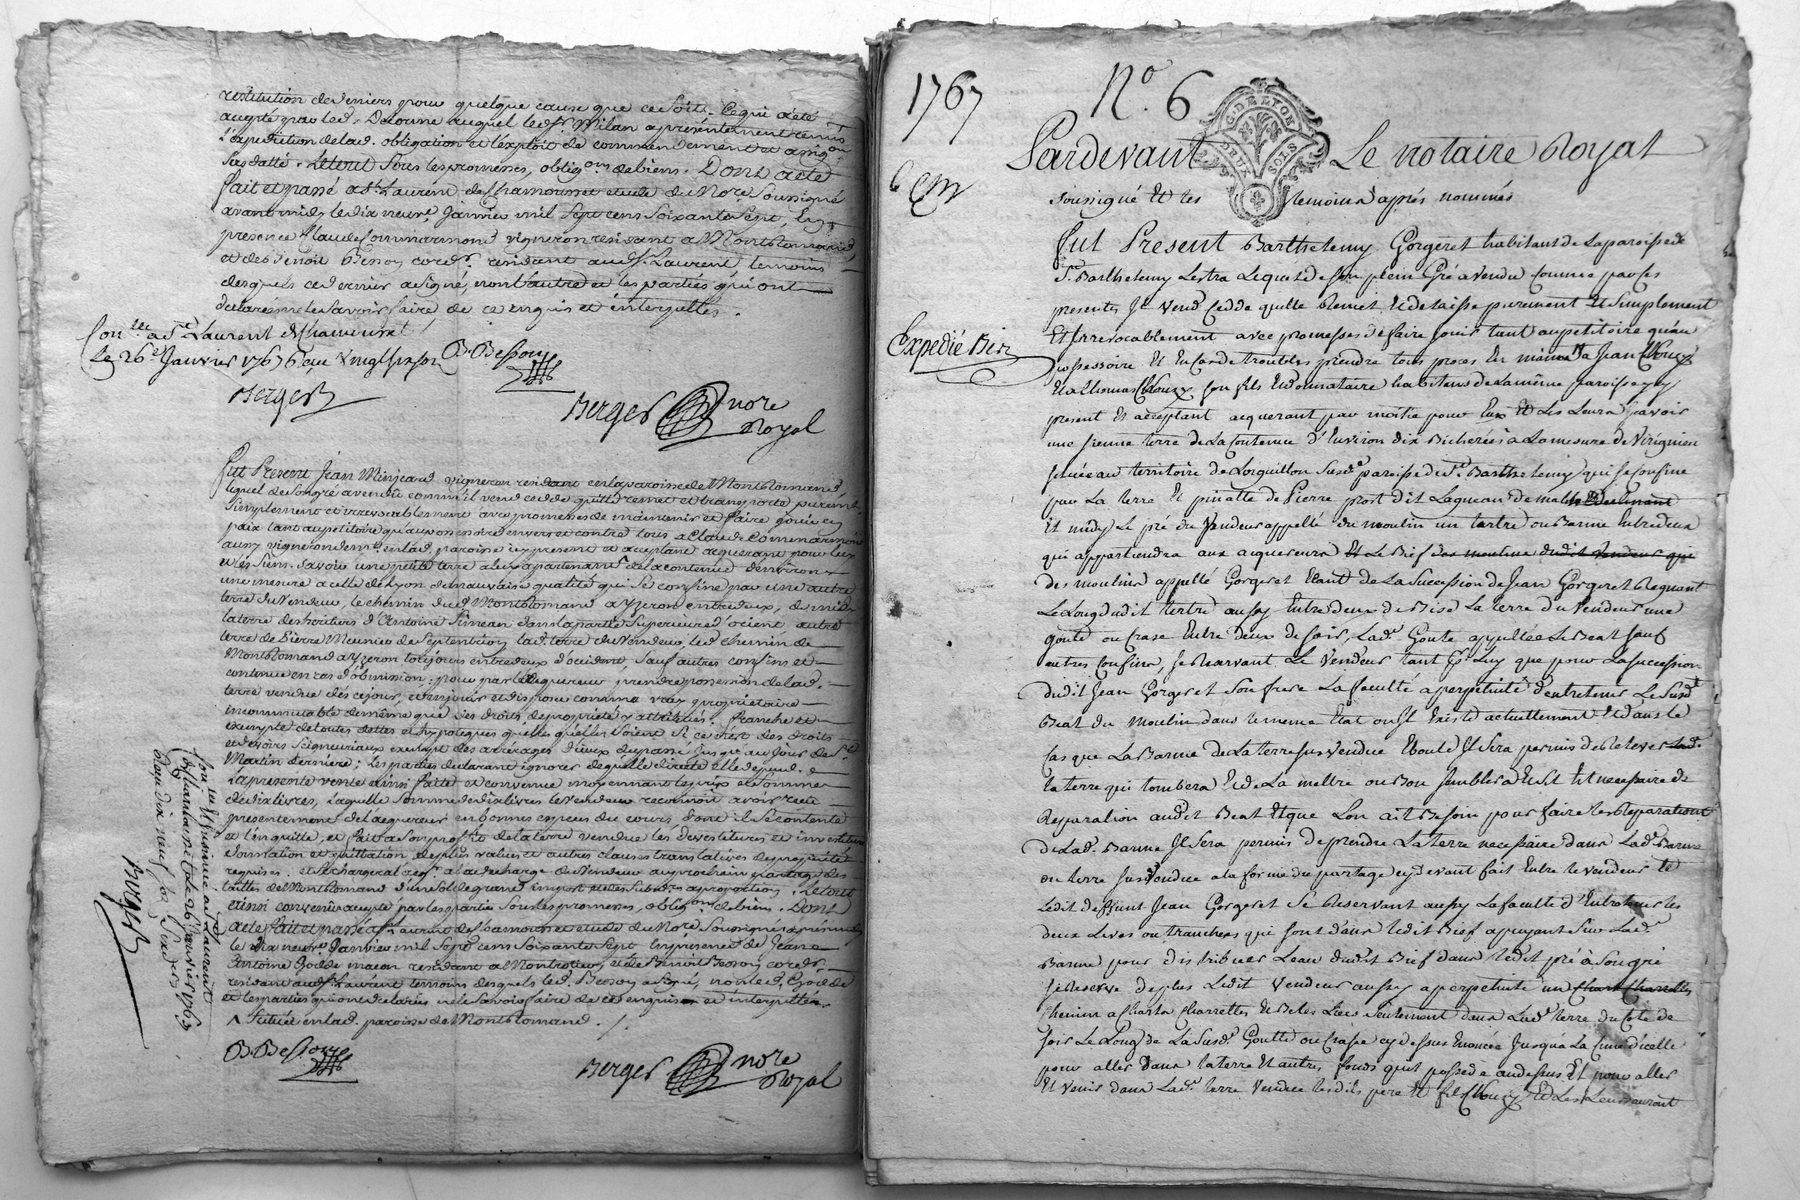 restitution de deniers pour quelque cause que ce soit. Ce qui a été
accepté par led. Delorme auquel led. Sr. Milan a présentement remis
l'expedition de lad. obligation et l'exploit de commendement et
susdatté. Le tout sous les promesses, obligons. de biens. Dont acte
fait et passé a St. Laurent de Chamousset etude du Nore. soussigné
avant midy le dix neuf Janvier mil sept cens soixante sept, En
presence Claude Commarmond vigneron residant a Montromand,
et de Benoit Besson cordr. residant aud. St. Laurent temoins
desquels ce dernier a signé, non l'autre et les parties qui ont
declaré ne le savoir faire de ce enquis et interpellés.
Conlée a St. Laurent de Chamousset
le 26e Janvier 1767 vingt six sols
B. Besson
Berger
Berger nore
Royal
Fut Present Jean vigneron residant en la paroisse de Montromand
lequel de son gré a vendu comm'il vend cede quitte remet et transporte purement
simplement et irrevocablement avec promesses de maintenir et faire jouir en
paix tant au petitoire qu'au possessoire envers et contre tous a Claude Commarmond
aussy vigneron demt. en lad. paroisse icy present et acceptant acquerant pour luy
et les siens. savoir une petite terre a luy apartenante de la contenue d'environ
une mesure a celle de Lyon de mauvaise qualité qui se confine par une autre
terre du vendeur, le chemin dud. Montromand a Yzeron entredeux, de midy
la terre des heritiers d'Antoine dans la partie superieure d'orient autre
terre de Pierre Meunier de septentrion lad. terre du vendeur led. chemin de
Montromand a Yzeron toujours entredeux d'occident, sauf autres confins et
contenue en cas d'obmission; pour par l'acquereur prendre possession de lad.
terre vendue dès ce jour, en jouir et dispose comme vray proprietaire
incommutable de même que des droits de proprieté y attribués. franche et
exempte de toutes dettes et hypoteques quelles quelles soient si ce n'est des droits
et devoirs seigneuriaux exempt des arrerages d'iceux du passé jusqu'au jour de St.
Martin derniere; les parties declarant ignorer de quelle directe elle depend.
La presente vente ainsi faitte et convenue moyennant le prix et somme
de dix livres, laquelle somme de dix livres le vendeur reconnoit avoir reçue
presentement de l'acquereur en bonnes especes du cours dont il se contente
et l'en quitte, et fait a son profit de la terre vendue les devestitures et investitures
donnation et quittation de plus values et autres clauses translatives de proprieté
requises. et se chargera l'acqr. a la decharge du vendeur au prochain partage des
tailles de Montromand d'un sol de grand import et des subsides a proportion. Le tout
ainsi convenu accepté par les parties sous les promesses, obligons. de biens. Dont
acte fait et passé a St. Laurent de Chamousset etude du Nore. Soussigné apres midy
le dix neuf Janvier mil sept cens soixante sept En presence de Jean
Antoine macon residant a Montrottier, et de Benoit Besson cordr.
residant aud. St. Laurent temoins desquels led. Besson a signé, non led.
et les parties qui ont declaré ne le savoir faire de ce enquis et interpellés.
^ située en lad. paroisse de Montromand.
B. Besson
Berger nore
Royal
Conlée et insinué a St. Laurent
de Chamousset le 26 Janvier 1767
Reçu dix neuf sols
Berger
1767
No. 6
G. DE LYON
DEUX SOLS
Pardevant Le notaire Royal
soussigné Et les temoins apprés nommés
Expedié
Fut Present Barthelemy Gorgeret habitant de la paroisse de
St. Barthelemy Lestra Lequel de son plein Gré a vendu comme par ces
presentes Il vend cedde quitte Remet Et delaisse purement Et simplement
Et Irrevocablement avec promesses de faire jouir tant au petitoire qu'au
possessoire Et En cas de troubles prendre tous proces En main a Jean Chouzy
Et a Thomas Chouzy son fils Et donnataire habitens de la même paroisse icy
present Et acceptant acquerant par moitié pour Eux Et Les Leurs sçavoir
une sienne terre de La Contenue d'Environ dix Bicherées a La mesure de Virignieu
située au territoire de Lorguillon susde. paroisse de St. Barthelemy qui se confine
par La terre Et pinatte de Pierre prost dit Laqueau de matin
Et midy Le pré du vendeur appellé du moulin un tertre ou Barme Entredeux
qui appartiendra aux acquereurs Et Le Bief des moulins dudit vendeur que
des moulins appellé Gorgeret Etant de La succession de Jean Gorgeret Regnant
Le Long dudit tertre aussy Entre deux de Bise La terre du vendeur une
goute ou Crase Entre deux de soir, Lade. Goute appellée Le Beat sauf
autres Confins, se Reservant Le vendeur tant pr. Luy que pour La succession
dudit Jean Gorgeret son frere La faculté a perpetuité d'entretenir Le susdt.
Beat du moulin dans le meme Etat ou Il Existe actuellement Et dans le
Cas que La Barme de La terre sus vendue Eboule Il sera permis de Relever
la terre qui tombera Et de La mettre ou Bon semblera Et s'il Est necessaire de
Reparation audit Beat Et que Lon ait Besoin pour faire les Reparations
de Lade. Barme Il sera permis de prendre La terre necessaire dans Lade. Barme
ou terre sus vendue a la forme du partage cy devant fait Entre le vendeur Et
Ledit deffunt Jean Gorgeret se Reservant aussy La faculté d'Entretenir les
deux Lives ou tranchees qui sont dans ledit Bief appuyant sur Lade.
Barme pour distribuer Leau dudit Bief dans ledit pré à son gré
se Reserve de plus Ledit vendeur aussy a perpetuité un
Chemin a Chars Charrettes Et Betes Liées seulement dans Lade. terre du Coté de
soir Le Long de La susde. Goutte ou Crase cy dessus Enoncée jusqu'a La Cime d'icelle
pour aller dans La terre Et autres fonds qu'il possede au dessus Et pour aller
Et venir dans Lade. terre vendue lesdits pere Et fils Chouzy Et Les Leurs auront